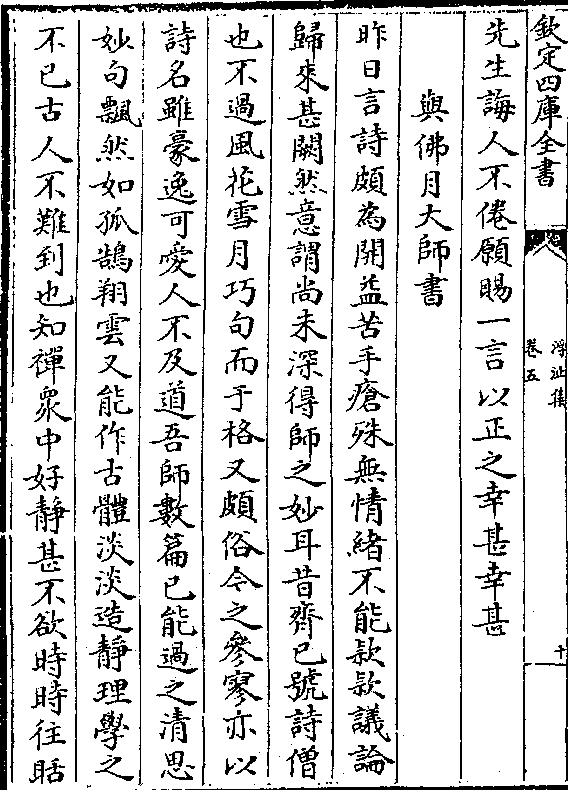 欽定四庫全書
浮沚集
卷五
十
先生誨人不倦願賜一言以正之幸甚幸甚
與佛月大師書
昨日言詩頗為開益苦手瘡殊無情緒不能款款議論
歸來甚闕然意謂尚未深得師之妙耳昔齊已號詩僧
也不過風花雪月巧句而于格又頗俗今之參寥亦以
詩名雖豪逸可愛人不及道吾師數篇已能過之清思
妙句飄然如孤鵠翔雲又能作古體淡淡造静理學之
不已古人不難到也知禪衆中好静甚不欲時時往聒